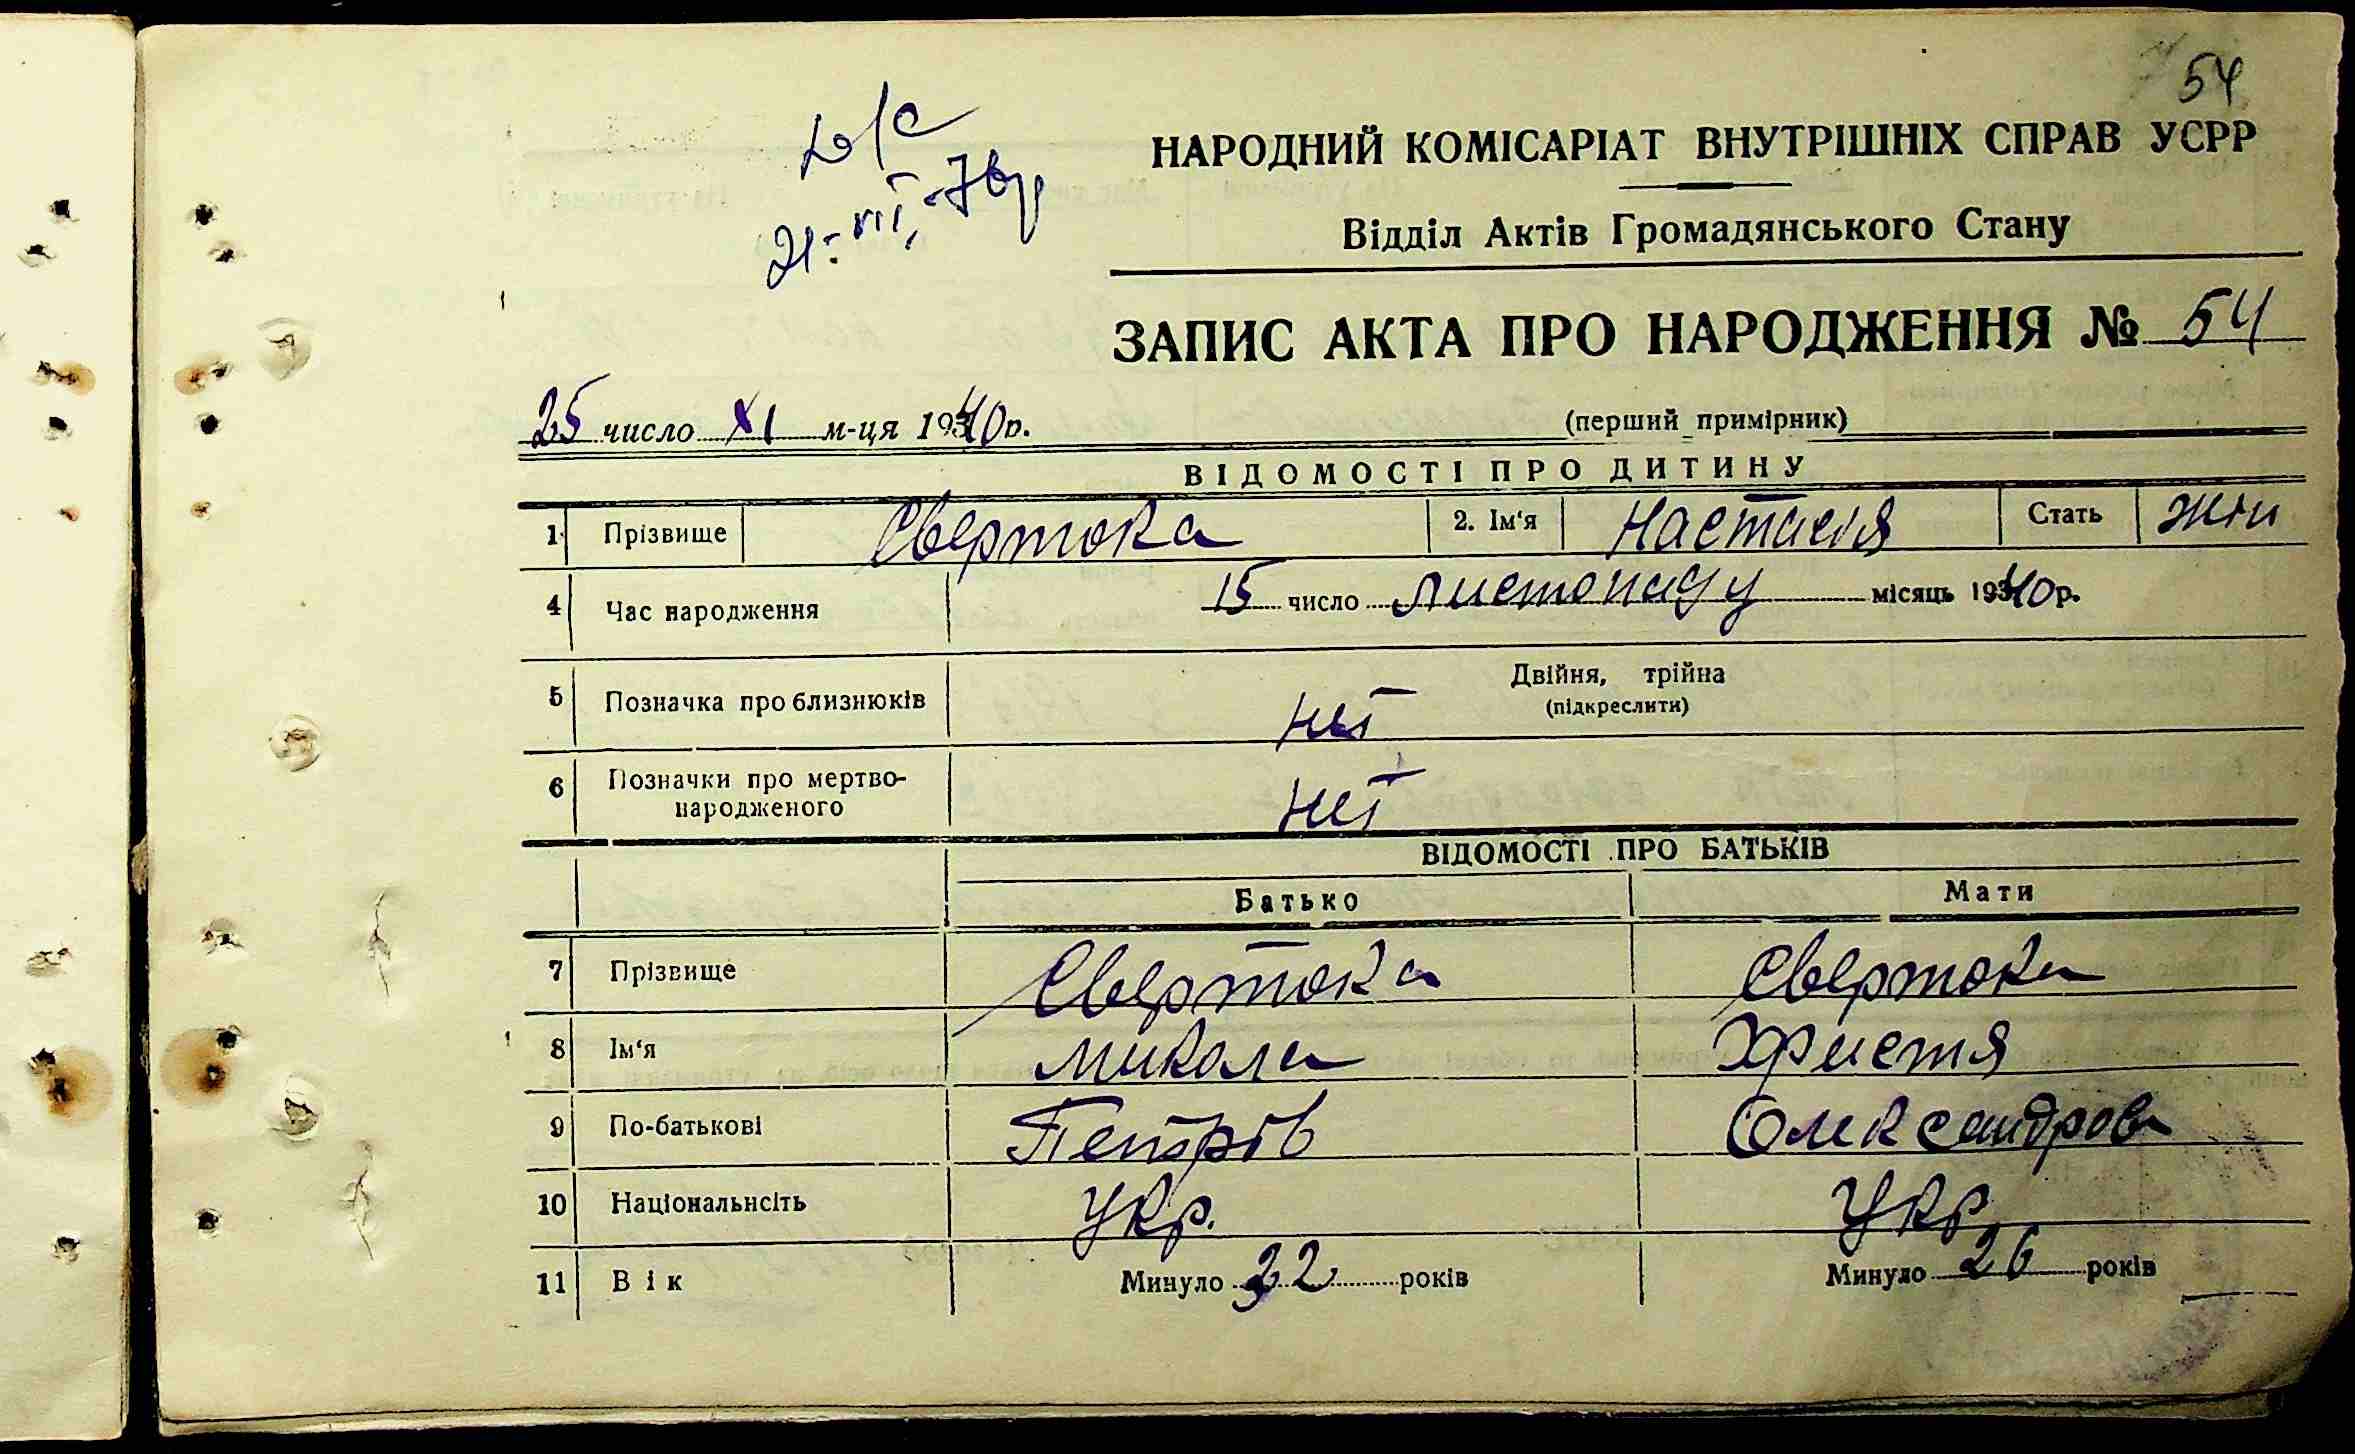 54
НАРОДНИЙ КОМІСАРІАТ ВНУТРІШНІХ СПРАВ УСРР
Відділ Актів Громадянського Стану
21. VII. 76р
ЗАПИС АКТА ПРО НАРОДЖЕННЯ № 54
25 число XI м-ця 1940р.
(перший примірник)
ВІДОМОСТІ ПРО ДИТИНУ
1 Прізвище Свертока 2. Ім'я Настасія Стать жін
4 Час народження 15 число листопаду місяць 1940р.
5 Позначка про близнюків нет Двійня, трійна
(підкреслити)
6 Позначки про мертво-
народженого нет
ВІДОМОСТІ ПРО БАТЬКІВ
Батько Мати
7 Прізвище Свертока Свертока
8 Ім'я Микола Христя
9 По-батькові Петрів Олександров
10 Національнсіть Укр. Укр
11 Вік Минуло 32 років Минуло 26 років